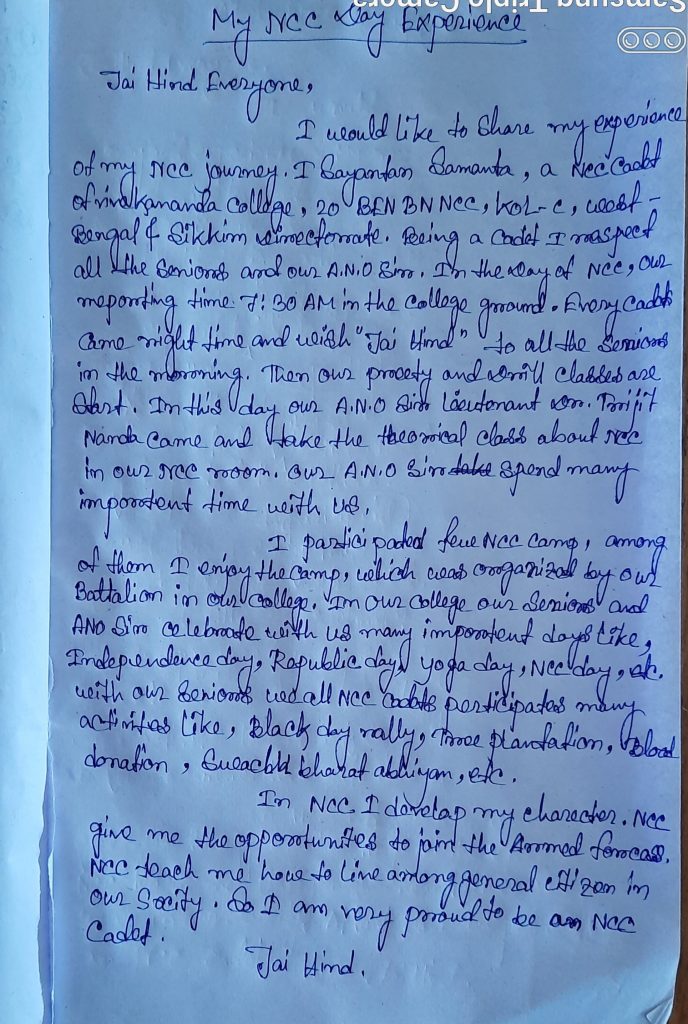 Samsung Triple Camera
My NCC Day Experience
Jai Hind Everyone,
I would like to Share my experience
of my NCC journey. I Sayantan Samanta, a NCC Cadet
of vivekananda College, 20 BEN BN NCC, KOL-C, west-
Bengal & Sikkim directorate. Being a Cadet I respect
all the Seniors and our A.N.O Sir. In the day of NCC, our
reporting time 7:30 AM in the college ground. Every Cadets
Came right time and wish "Jai Hind" to all the Seniors
in the morning. Then our and drill classes are
Start. In this day our A.N.O Sir Lieutenant Dr. Trijit
Nanda Came and take the theorical class about NCC
in our NCC room. Our A.N.O Sir take spend many
importent time with us.
I participated few NCC Camp, among
of them I enjoy the camp, which was organized by our
Battalion in our College. In our College our Seniors and
ANO Sir celebrate with us many importent days like,
Independence day, Republic day, yoga day, NCC day, etc.
with our Seniors we all NCC Cadets participates many
activities like, Black day rally, Tree plantation, Blood
donation, Swachh bharat abhiyan, etc.
In NCC I develop my charecter. NCC
give me the opportunites to join the Armed forces.
NCC teach me how to live among general citizen in
our Socity. So I am very proud to be an NCC
Cadet.
Jai Hind.